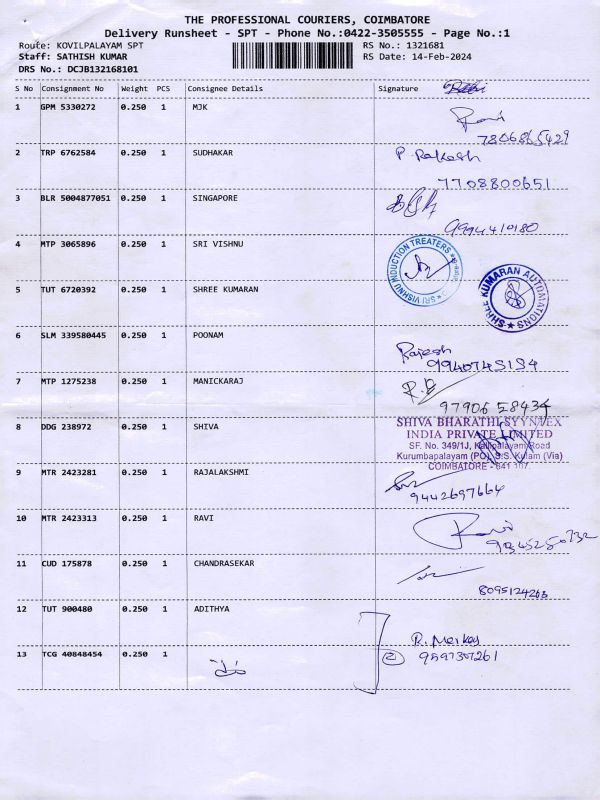 THE PROFESSIONAL COURIERS, COIMBATORE
Delivery Runsheet - SPT - Phone No.:0422-3505555 - Page No.:1
Route: KOVILPALAYAM SPT
Staff: SATHISH KUMAR
DRS No.: DCJB132168101
RS No.: 1321681
RS Date: 14-Feb-2024
S No Consignment No Weight PCS Consignee Details Signature
1 GPM 5330272 0.250 1 MJK
7806865429
2 TRP 6762584 0.250 1 SUDHAKAR P. Rakesh
7708800651
3 BLR 5004877051 0.250 1 SINGAPORE
4 MTP 3065896 0.250 1 SRI VISHNU
SRI VISHNU INDUCTION TREATERS
5 TUT 6720392 0.250 1 SHREE KUMARAN
SHREE KUMARAN AUTOMATIONS
6 SLM 339580445 0.250 1 POONAM
Rajesh
7 MTP 1275238 0.250 1 MANICKARAJ
9790658434
8 DDG 238972 0.250 1 SHIVA
SHIVA BHARATHI SYYNTEX
INDIA PRIVATE LIMITED
SF. No. 349/1J, Kalipalayam Road
Kurumbapalayam (PO), S.S. Kulam (Via)
COIMBATORE - 641 107.
9 MTR 2423281 0.250 1 RAJALAKSHMI
9442697664
10 MTR 2423313 0.250 1 RAVI
Ravi
11 CUD 175878 0.250 1 CHANDRASEKAR
8095124263
12 TUT 900480 0.250 1 ADITHYA
13 TCG 40848454 0.250 1
2